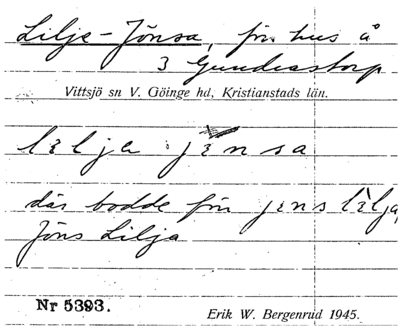 Lilje-Jönsa, förr hus å
3 Gundrastorp
Vittsjö sn V. Göinge hd, Kristianstads län.
lɛlja jɛnsa
där bodde förr jɛns lɛ̀lja,
Jöns Lilja
Nr 5393.
Erik W. Bergenrud 1945.